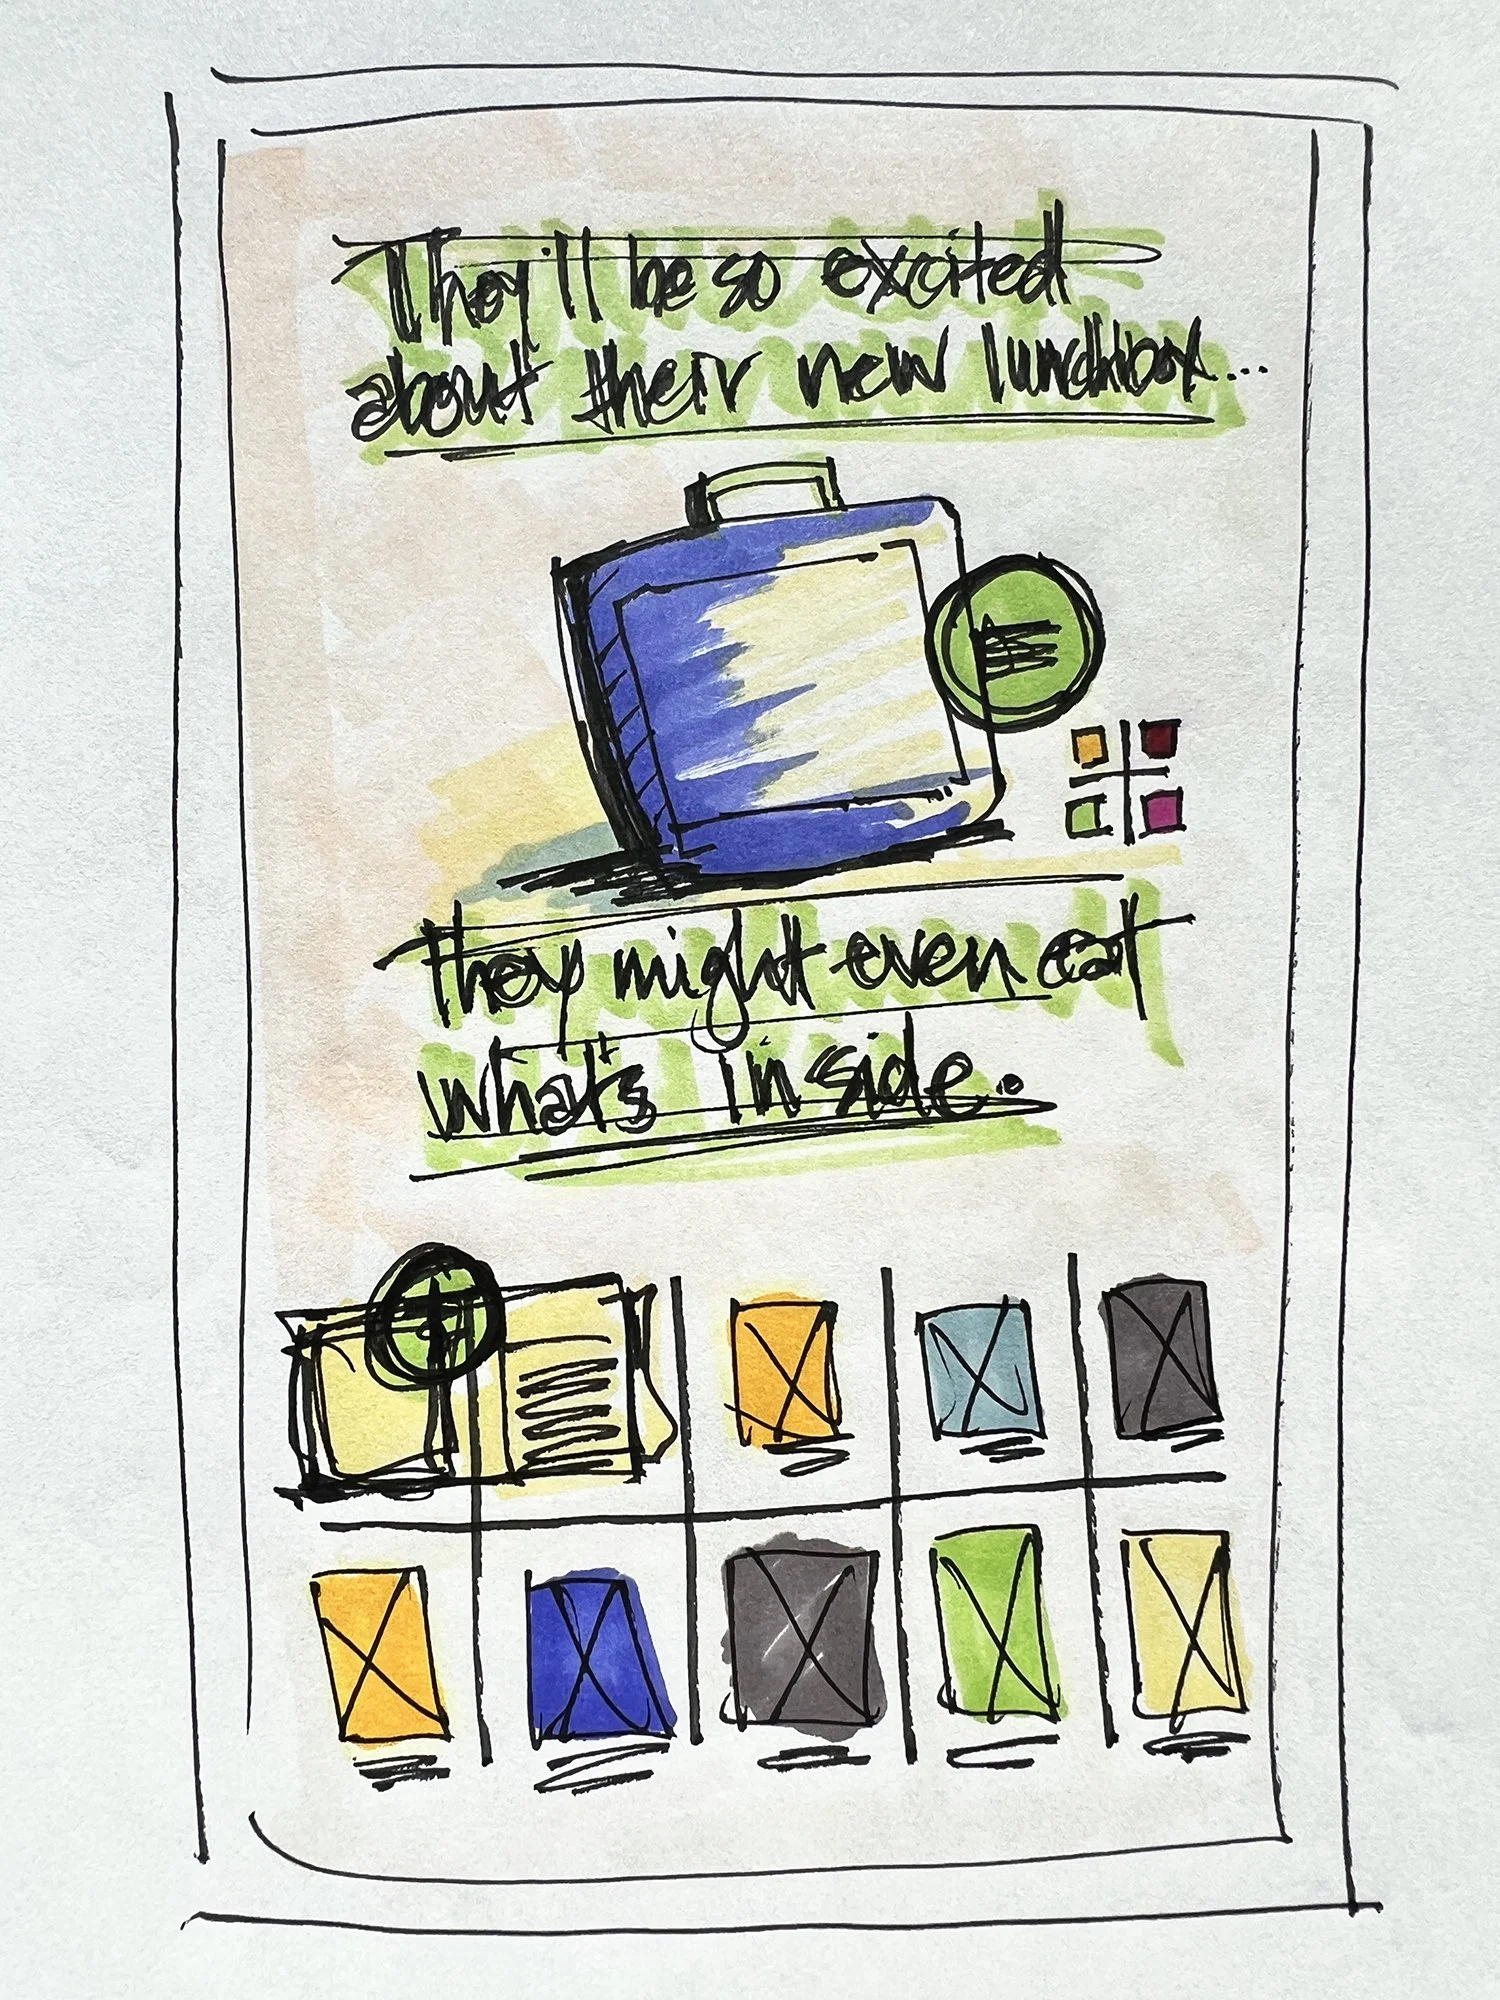 They'll be so excited
about their new lunchbox...
They might even eat
what's inside.